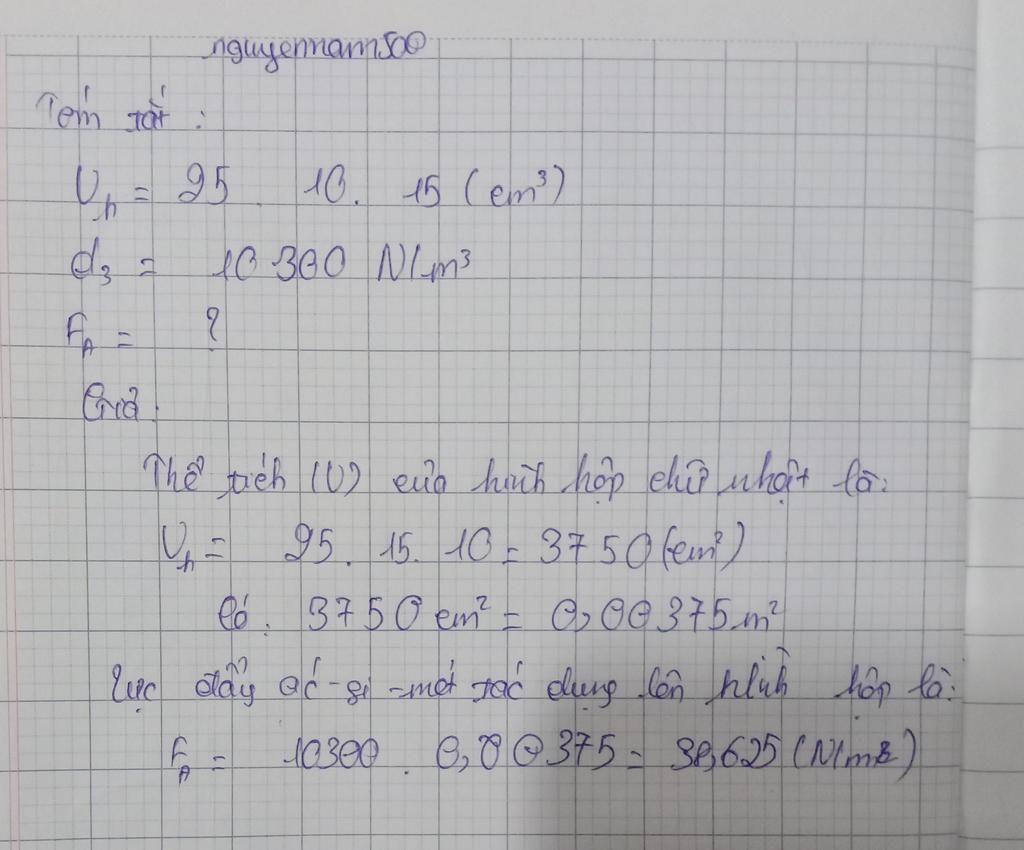 nguyennam500
Tóm tắt :
Vh = 25 . 10 . 15 (cm³)
d3 = 10 300 N/m³
FA = ?
Giải
Thể tích (V) của hình hộp chữ nhật là:
Vh = 25 . 15 . 10 = 3750 (cm²)
Có : 3750 cm² = 0,00375 m²
Lực đẩy ác-si-mét tác dụng lên hình hộp là:
FA = 10300 . 0,00375 = 38,625 (N/m2)